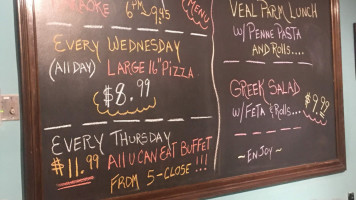 KARAOKE 6PM 9:45
MENU
EVERY WEDNESDAY
(ALL DAY) LARGE 16" PIZZA
$8.99
EVERY THURSDAY
$11.99 ALL U CAN EAT BUFFET
FROM 5-CLOSE !!!
VEAL PARM LUNCH
W/ PENNE PASTA
AND ROLLS....
GREEK SALAD
W/ FETA & ROLLS... $9.99
~ENJOY~